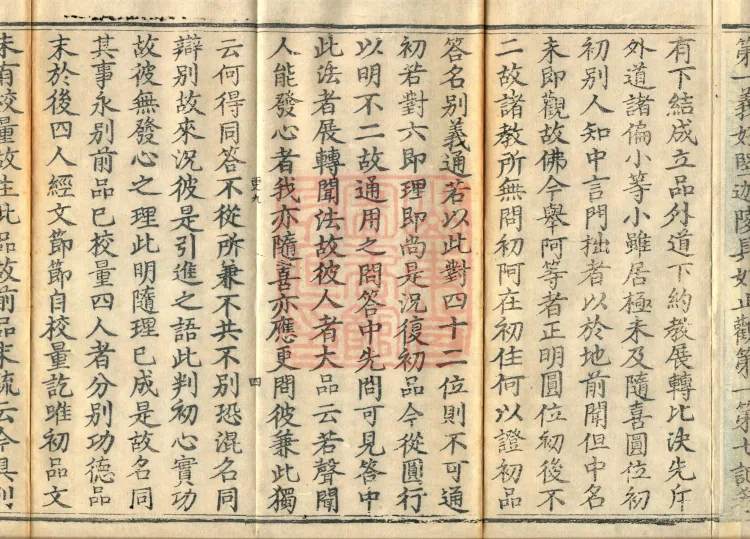 第一義如
有下結成立品外道下約教展轉比決先斤
外道諸偏小等小雖居極未及隨喜圓位初
初別人知中言門拙者以於地前聞但中名
未即觀故佛今舉阿等者正明圓位初後不
二故諸教所無問初阿在初住何以證初品
答名別義通若以此對四十二位則不可通
初若對六即理即尚是況復初品今從圓行
以明不二故通用之問答中先問可見答中
此法者展轉聞法故彼人者大品云若聲聞
人能發心者我亦隨喜亦應更問彼兼此獨
云何得同答不從所兼不共不別恐混名同
辯別故來況彼是引進之語此判初心實功
故彼無發心之理此明隨理已成是故名同
其事永別前品已校量四人者分別功德品
末於後四人經文節節自校量訖雖初品文
未有校量故在此品故前品末疏云今具列